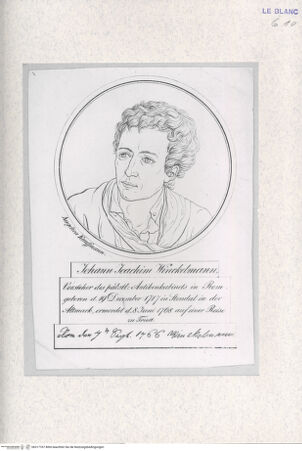 LE BLANC
Angelica Kauffmann
Johann Joachim Winckelmann,
Vorsteher des päbstl. Antikenkabinets in Rom
geboren d. 19 December 1717 in Stendal in der
Altmark, ermordet d. 8 Juni 1768 auf einer Reise
zu Triest.
Rom den 7
1766 Winckelmann